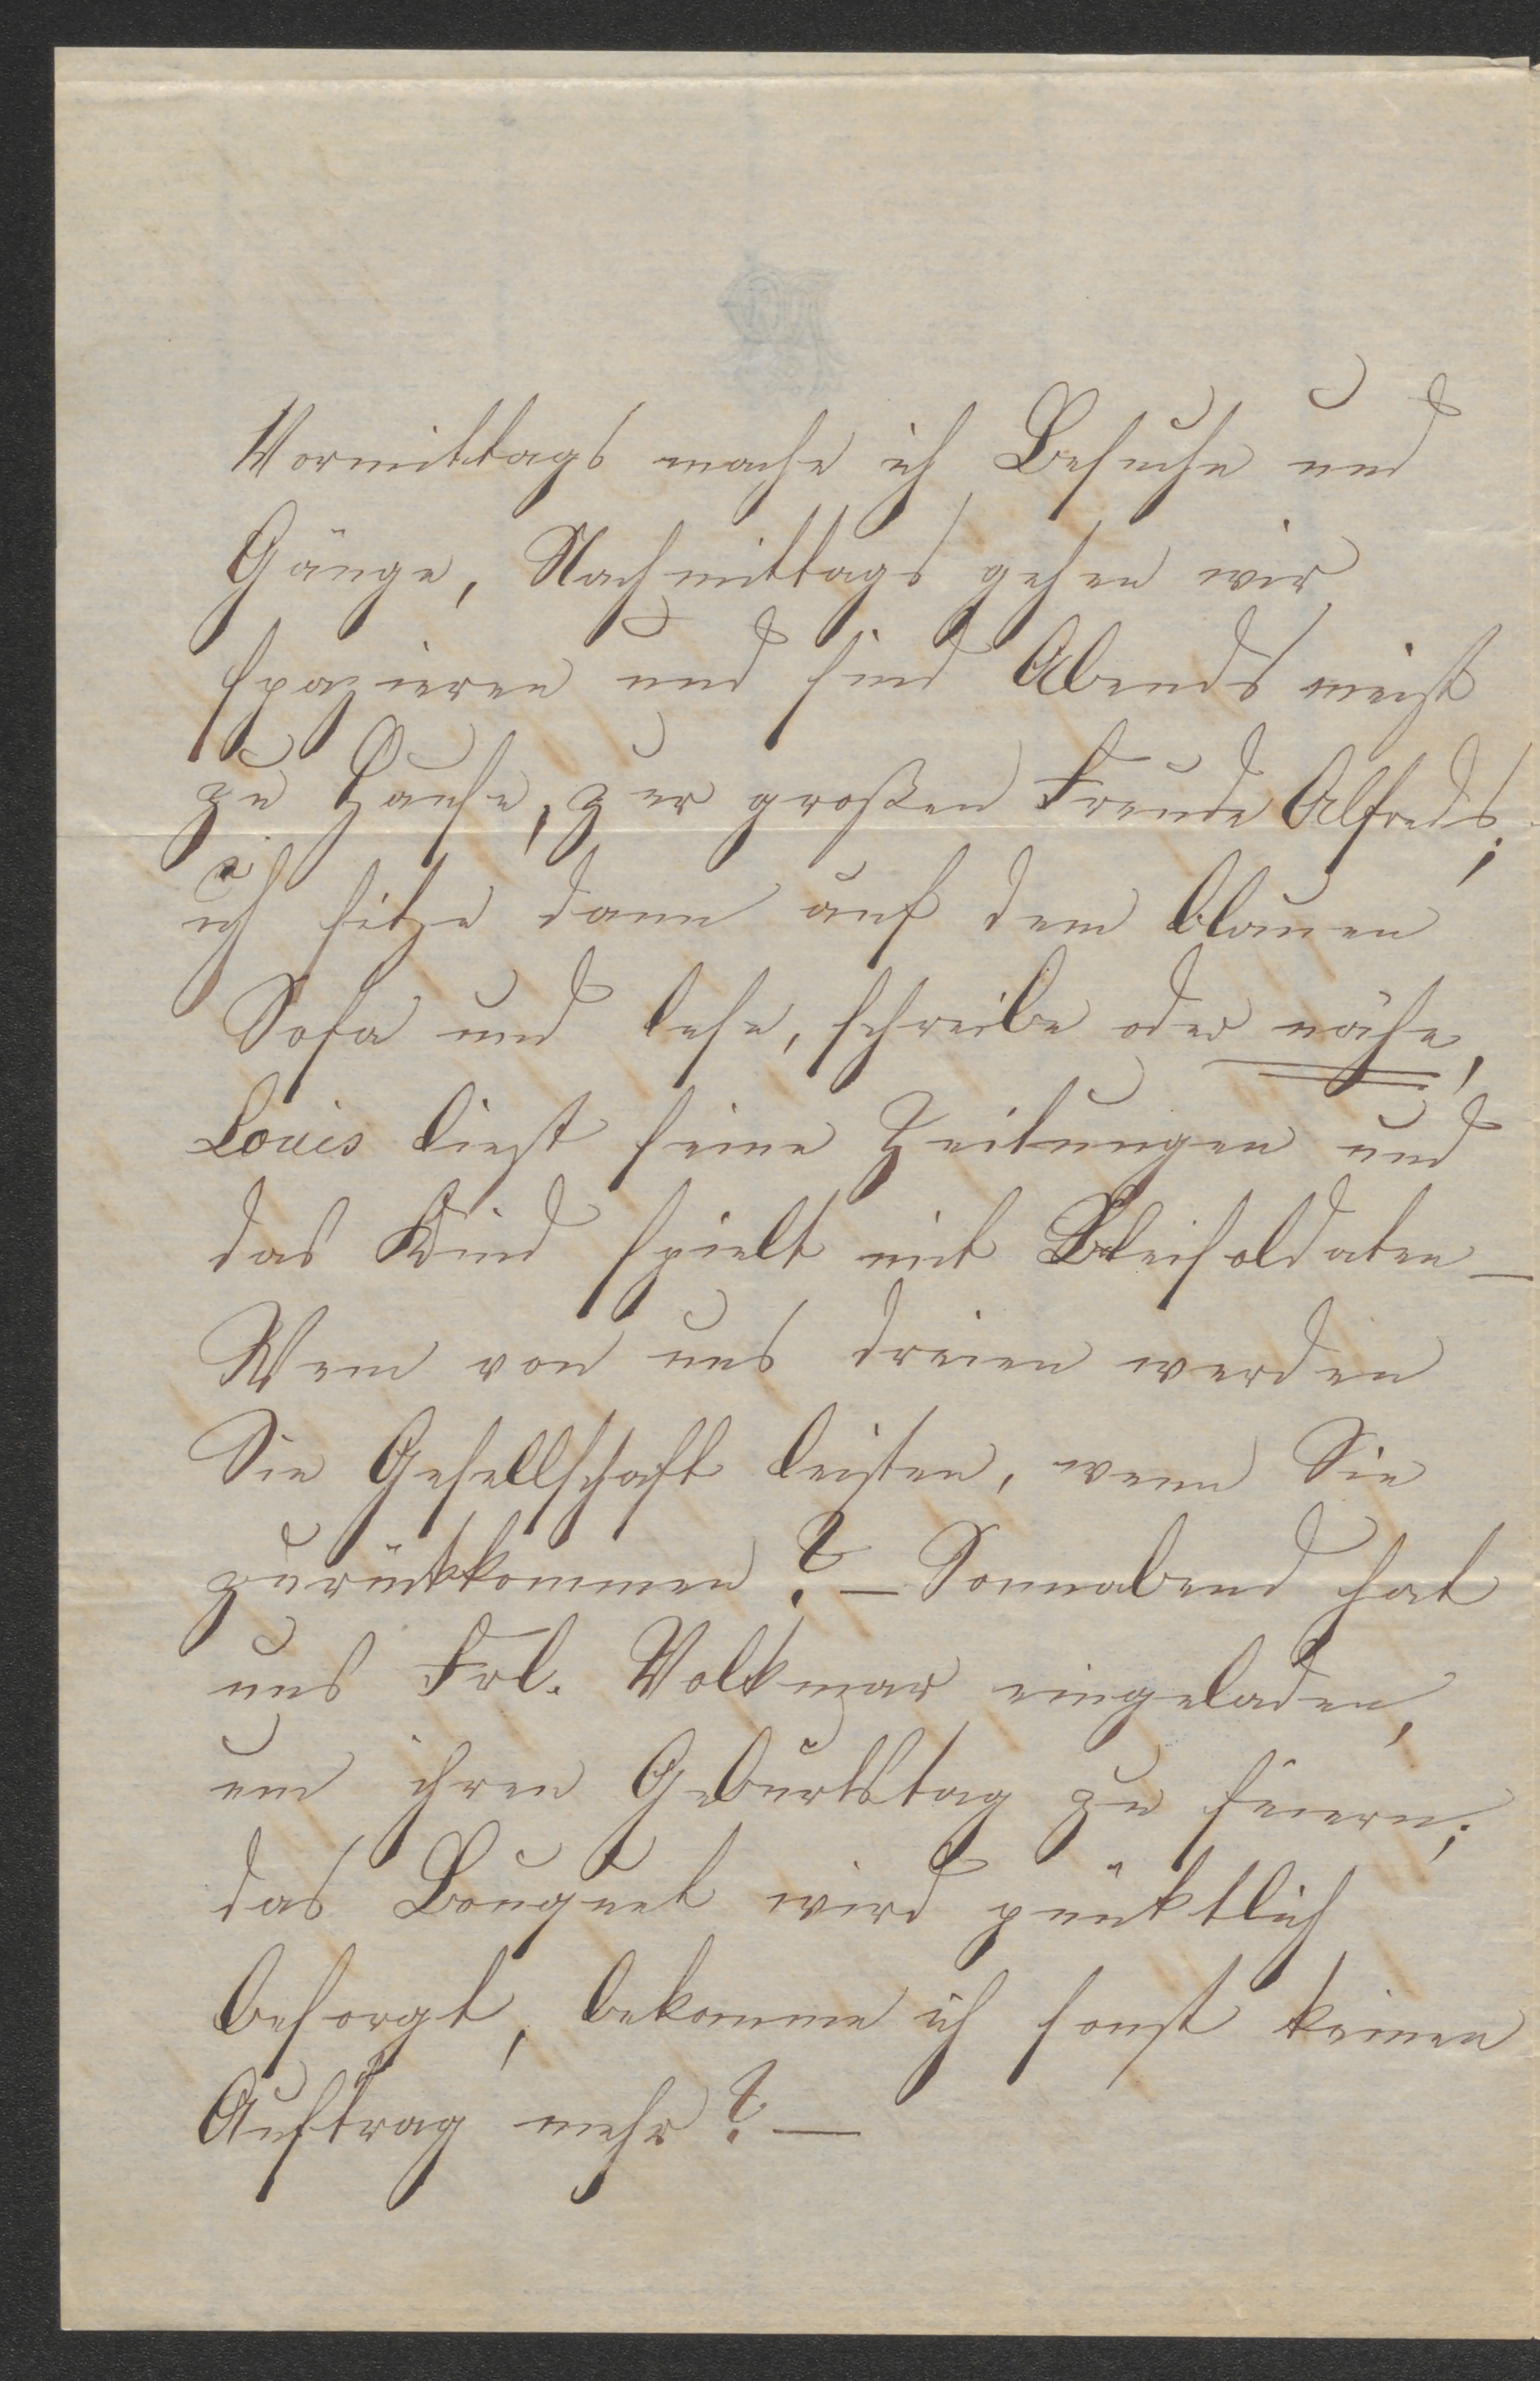 Vormittags mache ich Besuche und
Gänge, Nachmittags gehen wir
spazieren und sind Abends meist
zu Hause, zur großen Freude Alfreds;
ich sitze dann auf dem blauen
Sofa und lese, schreibe oder nähe,
Louis liest seine Zeitungen und
das Kind spielt mit Bleisoldaten —
Wem von uns dreien werden
Sie Gesellschaft leisten, wenn Sie
zurückkommen? — Sonnabend hat
uns Frl. Volkmar eingeladen,
um ihren Geburtstag zu feiern;
das Bouquet wird pünktlich
besorgt, bekomme ich sonst keinen
Auftrag mehr? —